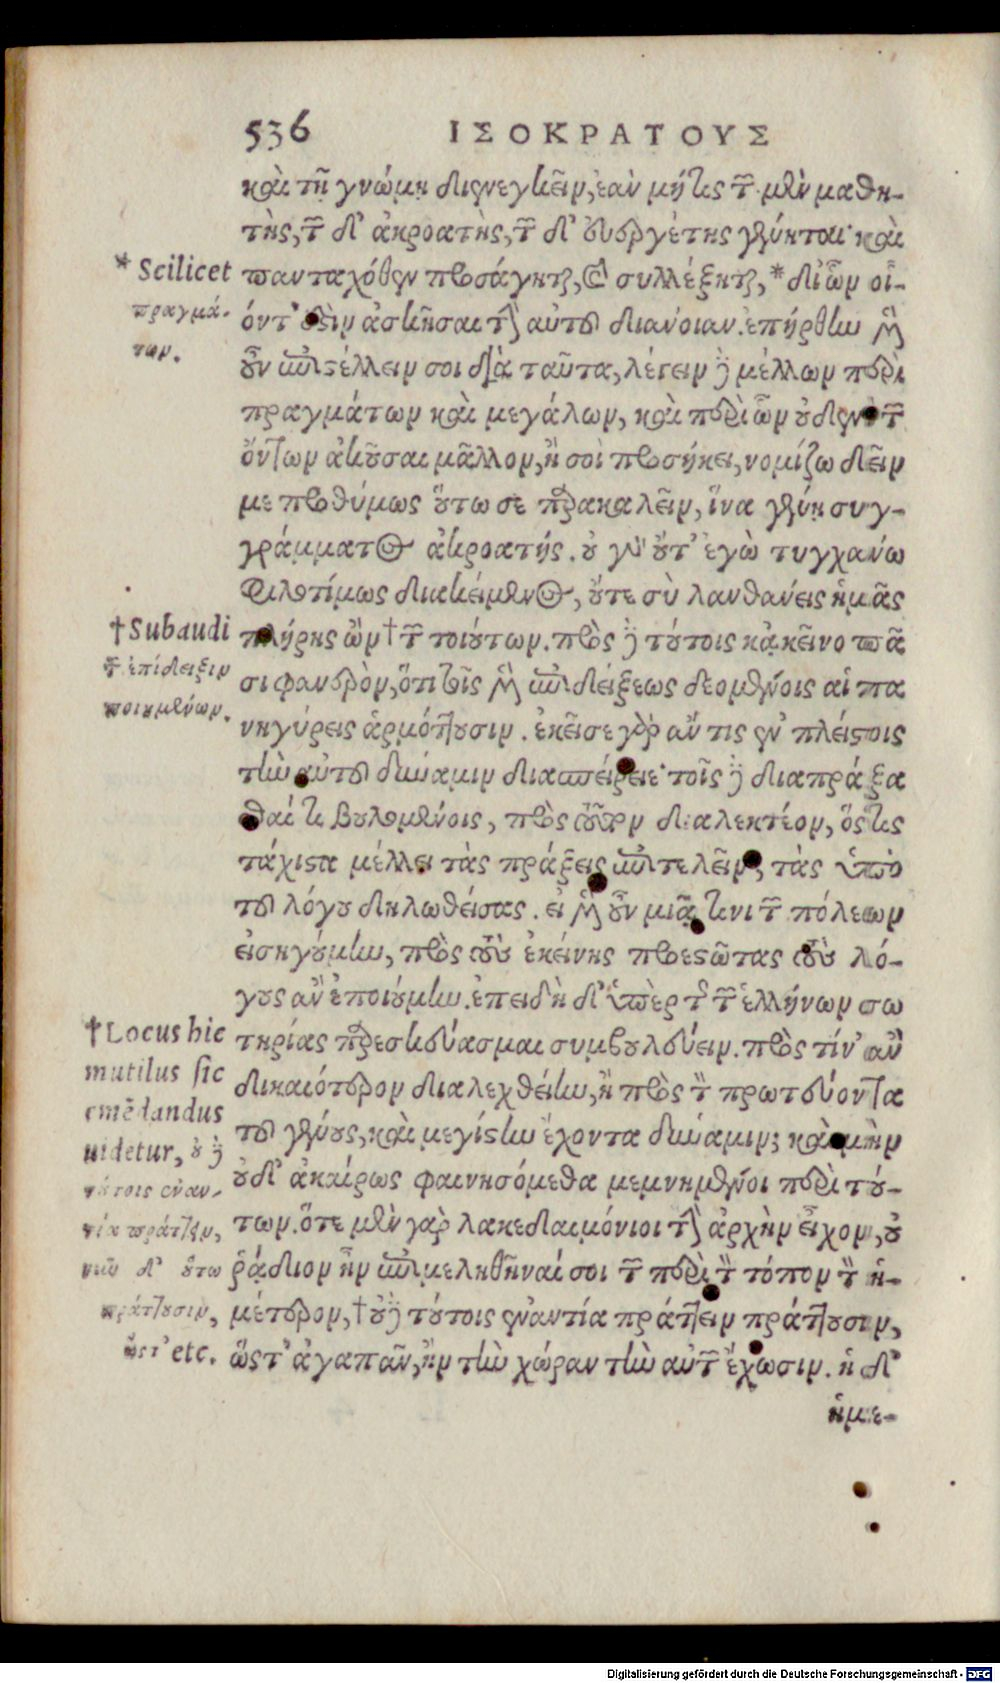 536 ΙΣΟΚΡΑΤΟΥΣ
καὶ τῇ γνώμῃ διενεγκεῖν, ἐὰν μή τις τῶν μὲν μαθη-
τὴς, τῶν δ' ἀκροατὴς, τῶν δ' εὑρετὴς γένηται· καὶ
πανταχόθεν προσάγηται, καὶ συλλέξηται, * δι' ὧν οἷ-
όντ' ἐστὶν ἀσκῆσαι τὴν αὑτοῦ διάνοιαν. ἐπήρθην μὲν
οὖν ἐπιστέλλειν σοι διὰ ταῦτα, λέγειν δὲ μέλλων περὶ
πραγμάτων καὶ μεγάλων, καὶ περὶ ὧν οὐδενὶ τῶν
ὄντων ἀκοῦσαι μᾶλλον, ἢ σοὶ προσήκει, νομίζω δεῖν
με προθύμως οὕτω σε παρακαλεῖν, ἵνα γένῃ συγ-
γράμματος ἀκροατής. οὐ γὰρ οὔτ' ἐγὼ τυγχάνω
φιλοτίμως διακείμενος, οὔτε σὺ λανθάνεις ἡμᾶς
πλήρης ὢν † τῶν τοιούτων. πρὸς δὲ τούτοις κἀκεῖνο πᾶ
σι φανερὸν, ὅτι τοῖς μὲν ἐπιδείξεως δεομένοις αἱ πα
νηγύρεις ἁρμόττουσιν. ἐκεῖσε γὰρ ἄν τις ἐν πλείστοις
τὴν αὑτοῦ δύναμιν διασπείρειε· τοῖς δὲ διαπράξα
σθαί τι βουλομένοις, πρὸς τοῦτον διαλεκτέον, ὅστις
τάχιστα μέλλει τὰς πράξεις ἐπιτελεῖν, τὰς ὑπὸ
τοῦ λόγου δηλωθείσας. εἰ μὲν οὖν μιᾷ τινι τῶν πόλεων
εἰσηγούμην, πρὸς τοὺς ἐκείνης προεστῶτας τοὺς λό-
γους ἂν ἐποιούμην. ἐπειδὴ δ' ὑπὲρ τῆς τῶν ἑλλήνων σω
τηρίας παρεσκεύασμαι συμβουλεύειν. πρὸς τίν' ἂν
δικαιότερον διαλεχθείην, ἢ πρὸς τὸν πρωτεύοντα
τοῦ γένους, καὶ μεγίστην ἔχοντα δύναμιν; καὶ μὴν
οὐδ' ἀκαίρως φανησόμεθα μεμνημένοι περὶ τού-
των. ὅτε μὲν γὰρ λακεδαιμόνιοι τὴν ἀρχὴν εἶχον, οὐ
ῥᾴδιον ἦν ἐπιμεληθῆναί σοι τῶν περὶ τὸν τόπον τὸν ἡ-
μέτερον, † οὐδὲ τούτοις ἐναντία πράττειν πράττουσιν,
ὥστ' ἀγαπᾶν, ἢν τὴν χώραν τὴν αὑτῶν ἔχωσιν. ἡ δ'
ἡμε-
* Scilicet
πραγμά-
των.
† Subaudi
τῶν ἐπίδειξιν
ποιουμένων.
† Locus hic
mutilus sic
emēdandus
uidetur, οὐ δὲ
τούτοις ἐναν-
τία πράττειν,
νῦν δ' οὕτω
πράττουσιν,
ὥστ' etc.
Digitalisierung gefördert durch die Deutsche Forschungsgemeinschaft - DFG